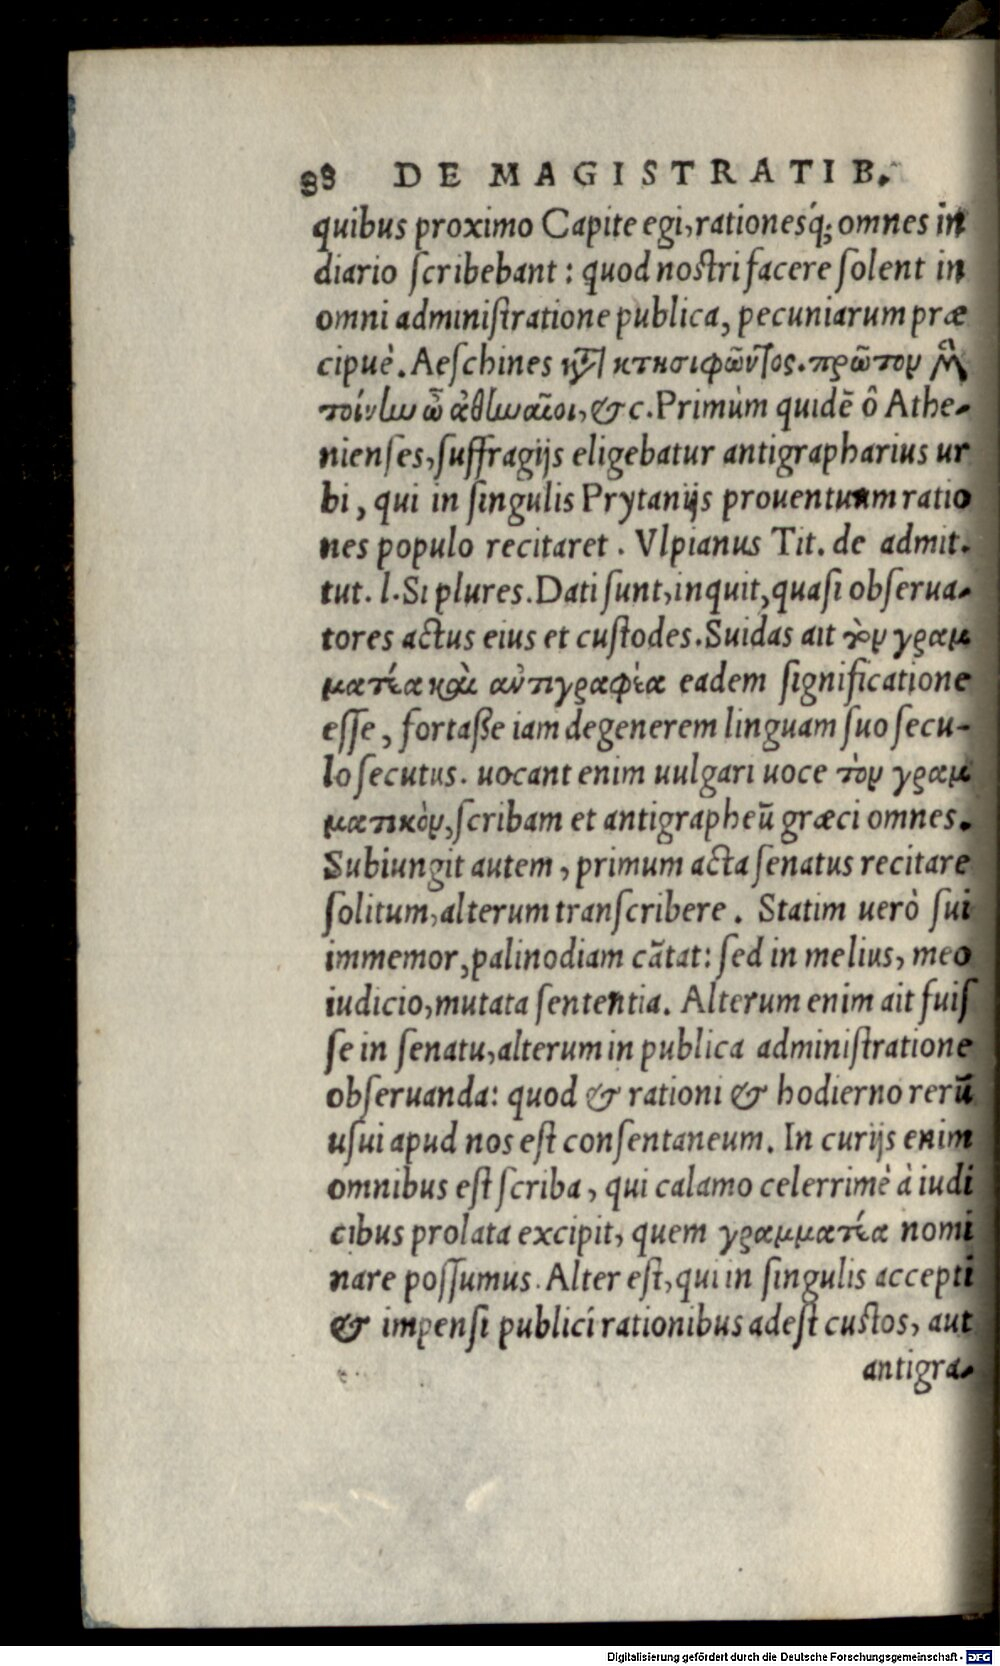 88 DE MAGISTRATIB.
quibus proximo Capite egi, rationesq́; omnes in
diario scribebant: quod nostri facere solent in
omni administratione publica, pecuniarum præ
cipuè. Aeschines κτ̃ κτησιφῶντος. πρῶτον μὲν
τοίνυν ὦ ἀθηναῖοι, &c. Primùm quidē ô Athe-
nienses, suffragijs eligebatur antigrapharius ur
bi, qui in singulis Prytanijs prouentuum ratio
nes populo recitaret. Vlpianus Tit. de admit.
tut. l. Si plures. Dati sunt, inquit, quasi obserua-
tores actus eius et custodes. Suidas ait τὸν γραμ
ματέα καὶ ἀντιγραφέα eadem significatione
esse, fortaße iam degenerem linguam suo secu-
lo secutus. uocant enim uulgari uoce τὸν γραμ
ματικὸν, scribam et antigrapheū græci omnes.
Subiungit autem, primum acta senatus recitare
solitum, alterum transcribere. Statim uerò sui
immemor, palinodiam cātat: sed in melius, meo
iudicio, mutata sententia. Alterum enim ait fuis
se in senatu, alterum in publica administratione
obseruanda: quod & rationi & hodierno rerū
usui apud nos est consentaneum. In curijs enim
omnibus est scriba, qui calamo celerrimè à iudi
cibus prolata excipit, quem γραμματέα nomi
nare possumus. Alter est, qui in singulis accepti
& impensi publici rationibus adest custos, aut
antigra-
Digitalisierung gefördert durch die Deutsche Forschungsgemeinschaft - DFG